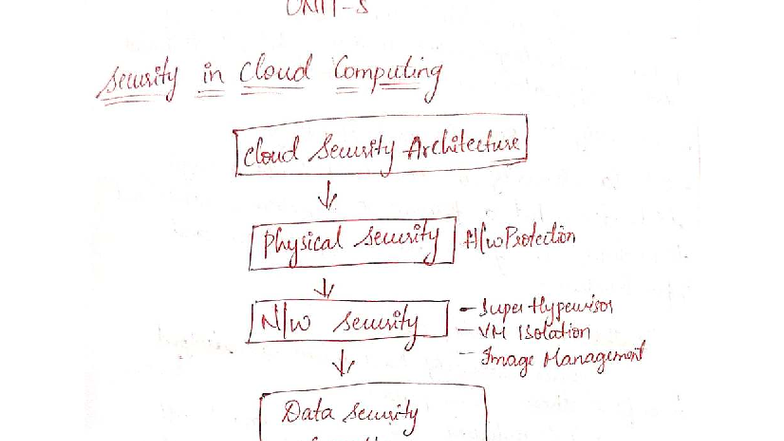 UNIT-5
Security in Cloud Computing
Cloud Security Architecture
Physical Security H/w Protection
N/w Security
- Super Hypervisor
- VM Isolation
- Image Management
Data Security